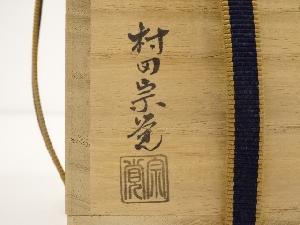 村田宗覚
宗覚